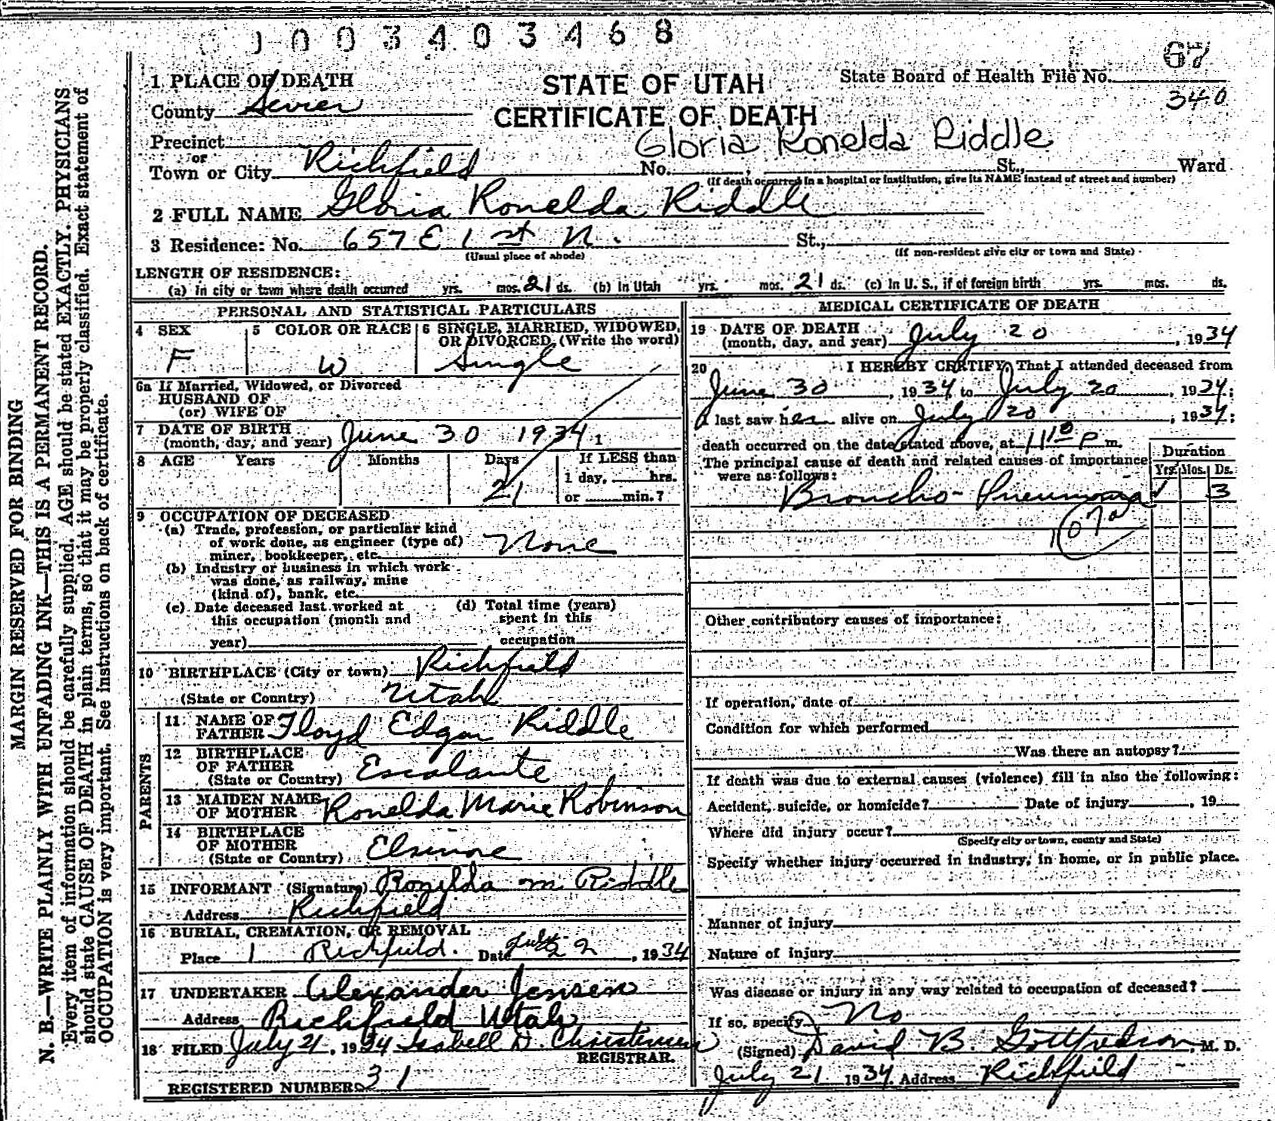 1003403468
67
1 PLACE OF DEATH
STATE OF UTAH
State Board of Health File No.
340
County Sevier
CERTIFICATE OF DEATH
Precinct
Gloria Ronelda Riddle
or
Town or City Richfield No. St., Ward
(If death occurred in a hospital or institution, give its NAME instead of street and number)
2 FULL NAME Gloria Ronelda Riddle
3 Residence: No. 657 E 1st N. St.,
(Usual place of abode) (If non-resident give city or town and State)
LENGTH OF RESIDENCE:
(a) In city or town where death occurred yrs. mos. 21 ds. (b) In Utah yrs. mos. 21 ds. (c) In U. S., if of foreign birth yrs. mos. ds.
PERSONAL AND STATISTICAL PARTICULARS
4 SEX
F
5 COLOR OR RACE
W
6 SINGLE, MARRIED, WIDOWED,
OR DIVORCED, (Write the word)
Single
6a If Married, Widowed, or Divorced
HUSBAND OF
(or) WIFE OF
7 DATE OF BIRTH
(month, day, and year) June 30 1934
8 AGE Years Months Days
21
If LESS than
1 day, hrs.
or min.?
9 OCCUPATION OF DECEASED
(a) Trade, profession, or particular kind
of work done, as engineer (type of)
miner, bookkeeper, etc. None
(b) Industry or business in which work
was done, as railway, mine
(kind of), bank, etc.
(c) Date deceased last worked at
this occupation (month and
year)
(d) Total time (years)
spent in this
occupation
10 BIRTHPLACE (City or town) Richfield
(State or Country) Utah
PARENTS
11 NAME OF
FATHER Floyd Edgar Riddle
12 BIRTHPLACE
OF FATHER
(State or Country) Escalante
13 MAIDEN NAME
OF MOTHER Ronelda Marie Robinson
14 BIRTHPLACE
OF MOTHER
(State or Country) Elsinore
15 INFORMANT (Signature) Ronelda M. Riddle
Address Richfield
16 BURIAL, CREMATION, OR REMOVAL
Place Richfield. Date July 22, 1934
17 UNDERTAKER Alexander Jensen
Address Richfield Utah
18 FILED July 21, 1934 Isabell D. Christensen
REGISTRAR.
REGISTERED NUMBER 31
MEDICAL CERTIFICATE OF DEATH
19 DATE OF DEATH
(month, day, and year) July 20, 1934
20 I HEREBY CERTIFY, That I attended deceased from
June 30, 1934 to July 20, 1934:
I last saw her alive on July 20, 1934:
death occurred on the date stated above, at 11 10 P m.
The principal cause of death and related causes of importance
were as follows:
Duration
Yrs. Mos. Ds.
Broncho-Pneumonia 3
107a
Other contributory causes of importance:
If operation, date of
Condition for which performed
Was there an autopsy?
If death was due to external causes (violence) fill in also the following:
Accident, suicide, or homicide? Date of injury , 19
Where did injury occur?
(Specify city or town, county and State)
Specify whether injury occurred in industry, in home, or in public place.
Manner of injury
Nature of injury
Was disease or injury in any way related to occupation of deceased?
If so, specify No
(Signed) David B. Gottfredson, M. D.
July 21 1934 Address Richfield
MARGIN RESERVED FOR BINDING
N. B.—WRITE PLAINLY WITH UNFADING INK—THIS IS A PERMANENT RECORD.
Every item of information should be carefully supplied. AGE should be stated EXACTLY. PHYSICIANS
should state CAUSE OF DEATH in plain terms, so that it may be properly classified. Exact statement of
OCCUPATION is very important. See instructions on back of certificate.